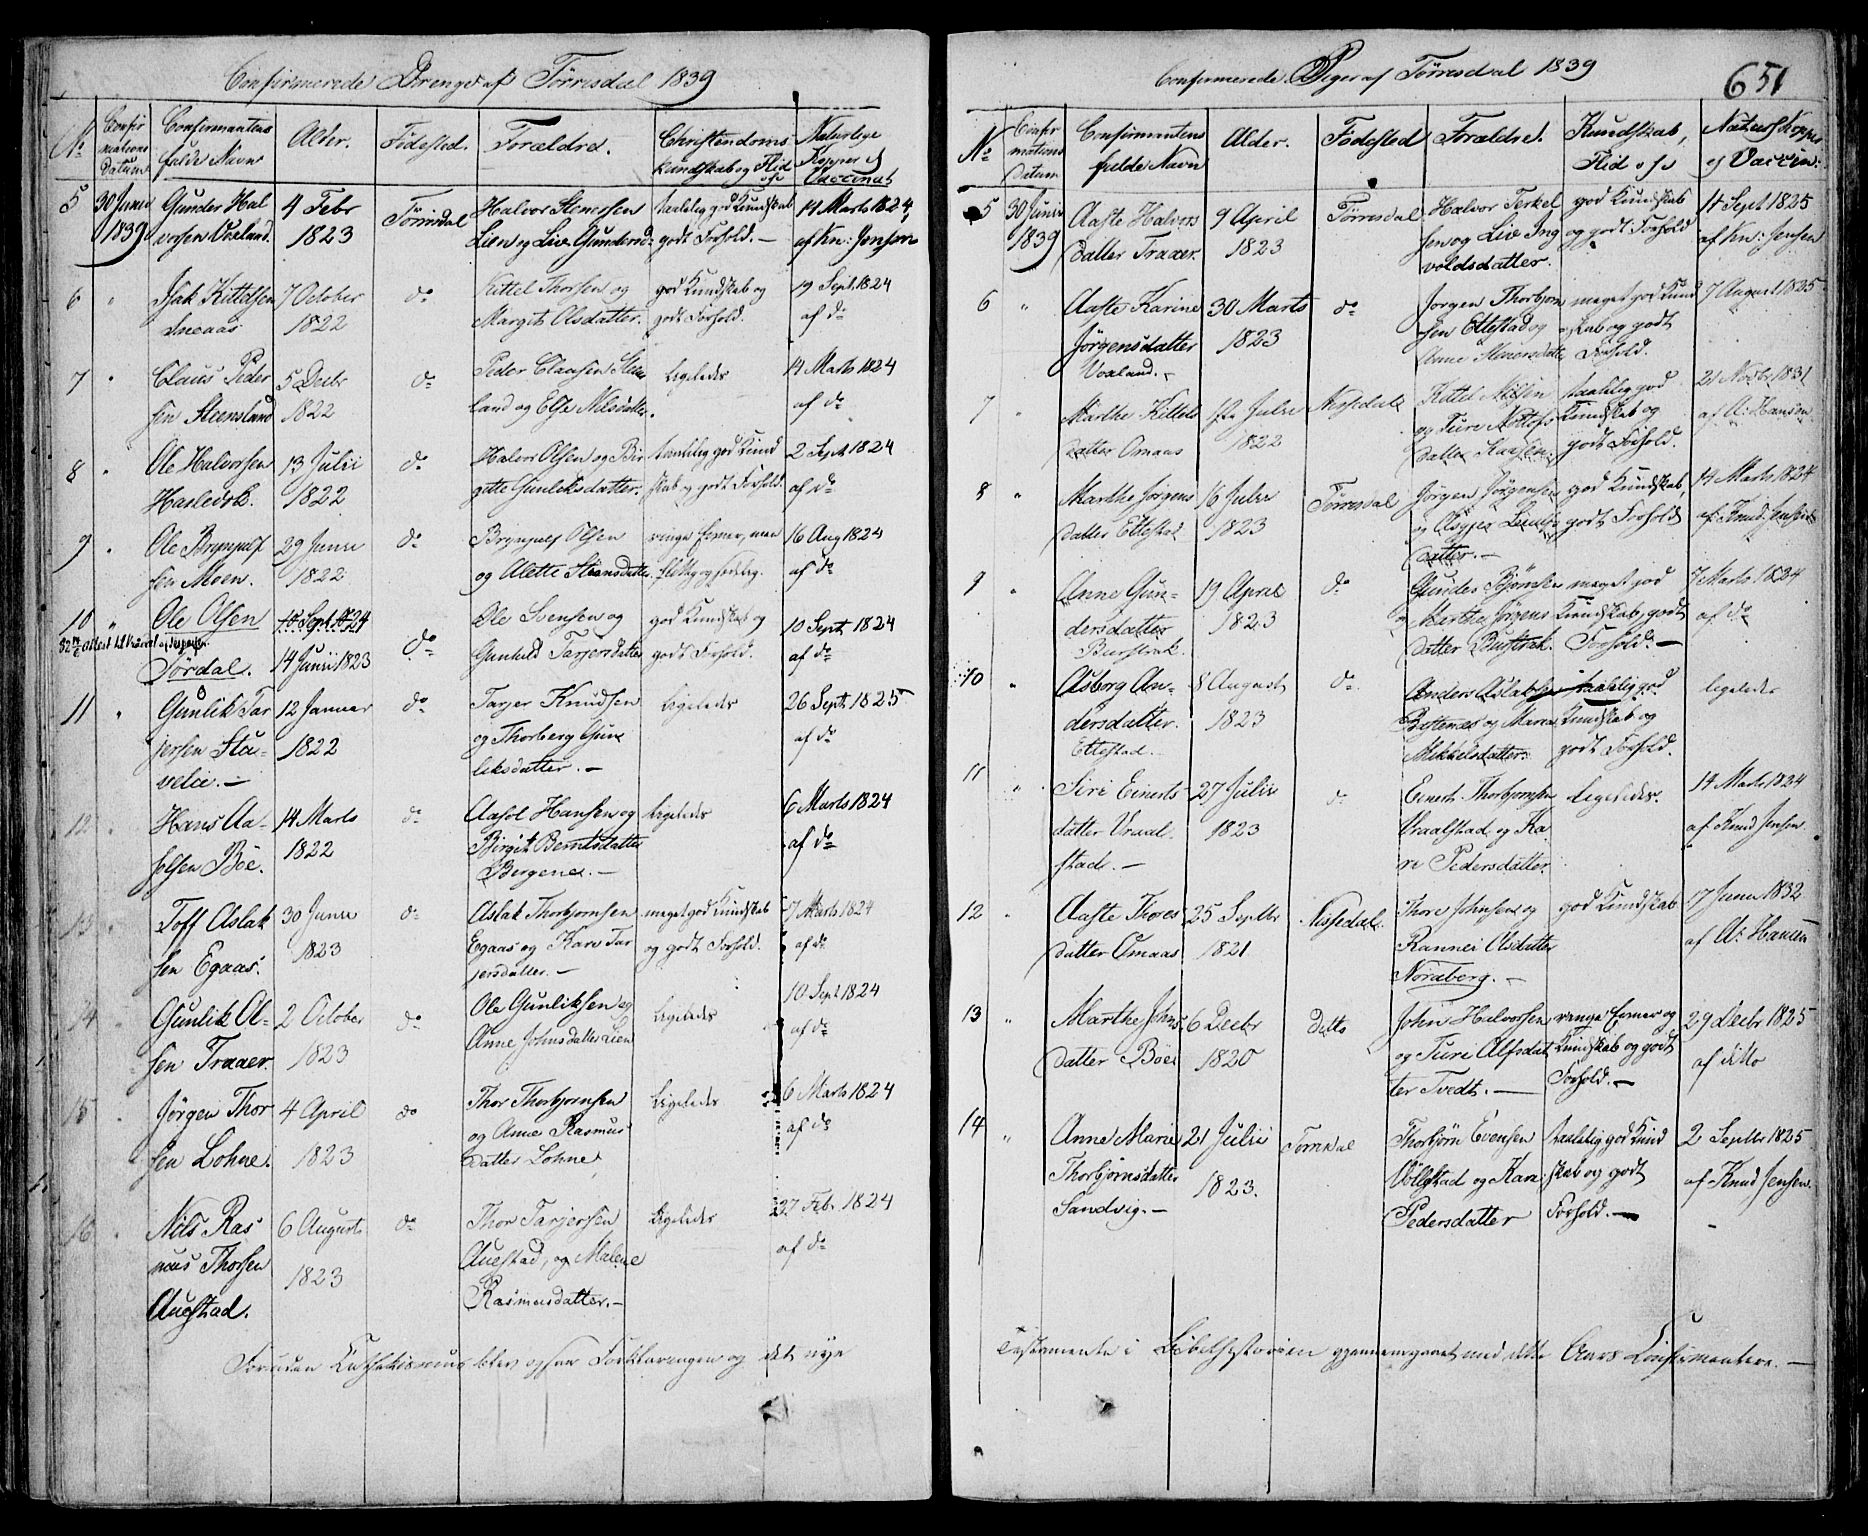 Confirmerede Drenge af Tørrisdal 1839
No
Confir
mations
Datum
Confirmantens
fulde Navn
Alder.
Fødested.
Forældre.
Christendoms
kundskab og Flid
osv
Naturlige
Kopper el
Vaccinat
5
30 Junii
1839
Gunder Hal
vorsen Voxland.
4 Febr
1823
Törrisdal
Halvor Stenersen
Lien og Liv Gundersd:
taalelig god Kundskab
godt Forhold. —
14 Marts 1824,
af Kn: Jensen
6 "
Isak Kittelsen
7 October
1822
do
Kittel Thorsen og
Margit Olsdatter.
god Kundskab og
godt Forhold.
19 Sept. 1824
af do
7 "
Claus Peder
sen Steensland
5 Decbr
1822
do
Peder Claussen Steens
land og Else Nilsdatter.
Ligeledes
14 Marts 1824
af do
8 "
Ole Halvorsen
13 Julii
1822
do
Halvor Olsen og Bir
gitte Gunleksdatter.
taalelig god Kund
skab og godt Forhold.
2 Sept 1824
af do
9 "
Ole Brynjulf
sen Moen.
29 Junii
1822
do
Brynjulf Olsen
og Alette Steansdatter.
ringe Evner, men
flittig og sædelig.
16 Aug 1824
af do
10 "
Ole Olsen
Tørdal.
10 Sept 1824
14 Junii 1823
do
Ole Svensen og
Gunhild Tarjersdatter
god Kundskab og
godt Forhold.
10 Sept 1824
af do
11 "
Gunlik Tar
jersen Sta-
velie. —
12 Januar
1822
do
Tarjer Knudsen
og Thorberg Gun
leksdatter. —
Ligeledes
26 Sept 1825
af do
12 "
Hans Aa-
solsen Böe.
14 Marts
1822
do
Aasol Hansen og
Birgit Berntsdatter
Bergene. —
Ligeledes
6 Marts 1824
af do
13 "
Toff Aslak
sen Egaas.
30 Junii
1823
do
Aslak Thorbjornsen
Egaas og Kare Tar
jersdatter. —
meget god Kundskab
og godt Forhold.
7 Marts 1824
af do
14 "
Gunlik Ol-
sen Traaer.
2 October
1823
do
Ole Gunliksen og
Anne Johnsdatter Lien
Ligeledes
10 Sept 1824
af do
15 "
Jörgen Thor
sen Lohne.
4 April
1823
do
Thor Thorbjornsen
og Anne Rasmus
datter Lohne
Ligeledes
6 Marts 1824
af do
16 "
Nils Ras
mus Thorsen
Auestad.
6 August
1823
do
Thor Tarjersen
Auestad, og Malene
Rasmusdatter. —
Ligeledes
27 Febr 1824
af do
Foruden Kathekismus blev ogsaa Forklaringen og det nye
Confirmerede Piger af Tørresdal 1839
651
No
Confir
mations
Datum
Confirmantens
fulde Navn
Alder.
Födested
Forældre.
Kundskab,
Flid osv
Naturl Kopper
og Vaccin:
5
30 Junii
1839
Aaste Halvors
datter Traaer.
9 April
1823
Törresdal
Halvor Terkel
sen og Liv Ing
voldsdatter.
god Kundskab
og godt Forhold
11 Sept 1825
af Kn: Jensen
6 "
Aaste Karine
Jörgensdatter
Voxland. —
30 Marts
1823
do
Jorgen Thorbjorn
sen Ettestad og
meget god Kund
skab og godt
Forhold.
7 August 1825
7 "
Marthe Kittels
datter Omaas
12 Julii
1822
Nissedal
Kittel Nilsen
og Ture Nottofs
datter
taalelig god
Kundskab og
godt Forhold.
21 Novbr 1831
af A: Hansen
8 "
Marthe Jörgens
datter Ettestad
16 Julii
1823
Törresdal
Jörgen Jörgensen
og
datter. —
god Kundskab,
godt Forhold
14 Marts 1824
af Knud Jensen
9 "
Anne Gun-
dersdatter
Burstrak.
19 April
1823
do
Gunder Bjornsen
og Marthe Jörgens
datter Burstrak.
meget god
Kundskab, godt
Forhold. —
7 Marts 1824
af do
10 "
Asborg An-
dersdatter
Ettestad.
8 August
1823
do
Anders Aslaksen
og Maren
Mikkelsdatter.
taalelig god
Kundskab og
godt Forhold.
ligeledes
11 "
Siri Einerts
datter Vraal
stad. —
27 Julii
1823
do
Einert Thorbjornsen
Vraalstad og Ka
ri Pedersdatter.
Ligeledes.
14 Marts 1824
af Knud Jensen
12 "
Aaste Thores
datter Omaas
25 Septbr
1821
Nissedal.
Thore Johnsen og
Rannei Olsdatter
Nordberg. —
god Kundskab
17 Junii 1832
af A: Hansen
13 "
Marthe Johns
datter Böei
6 Decbr
1820
Ditto
John Halvorsen
og Turi Alfsdat
ter Tvedt. —
ringe Evner og
Kundskab og godt
Forhold. —
29 Decbr 1825
af ditto
14 "
Anne Marie
Thorbjørnsdatter
Sandvig. —
21 Julii
1823.
Törrisdal
Thorbjörn Evensen
Völlestad og Kara
Pedersdatter
taalelig god Kund
skab og godt
Forhold. —
2 Septbr 1825
af Knud Jensen.
Testamente i Bibelhistorien gjennemgaaet med dette Aars Confirmantere. —